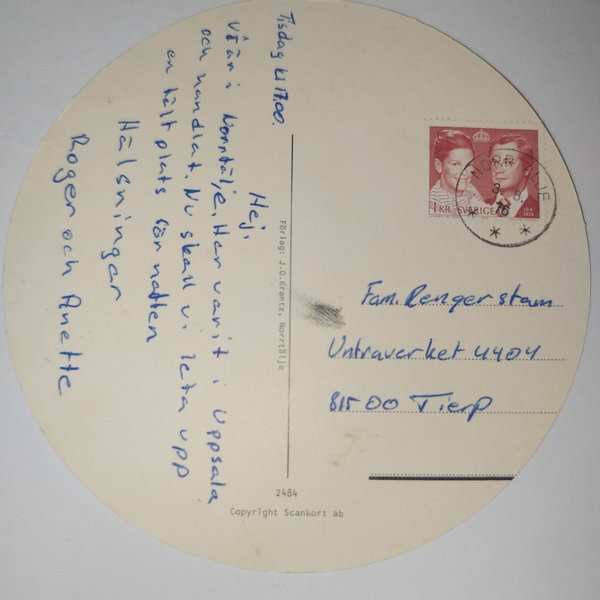 Tisdag kl 17.00.
Hej,
Vi är i Norrtälje. Har varit i Uppsala
och handlat. Nu skall vi leta upp
en tält plats för natten
Hälsningar
Roger och Anette
Förlag: J.O.Krantz, Norrtälje
1 KR SVERIGE
NORRTÄLJE
Fam. Rengerstam
Untraverket 4404
815 00 Tierp
2484
Copyright Scankort ab